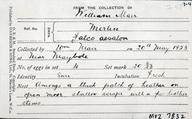 FROM THE COLLECTION OF
William Mair
Merlin
Falco aesalon
Collected by Wm Mair on 20th May 1923
at Near Maybole
No. of eggs in set 4 Set mark 20/23
Identity Sure Incubation Fresh
Nest Amongst a thick patch of heather on
open moor shallow scrape with a few heather
stems